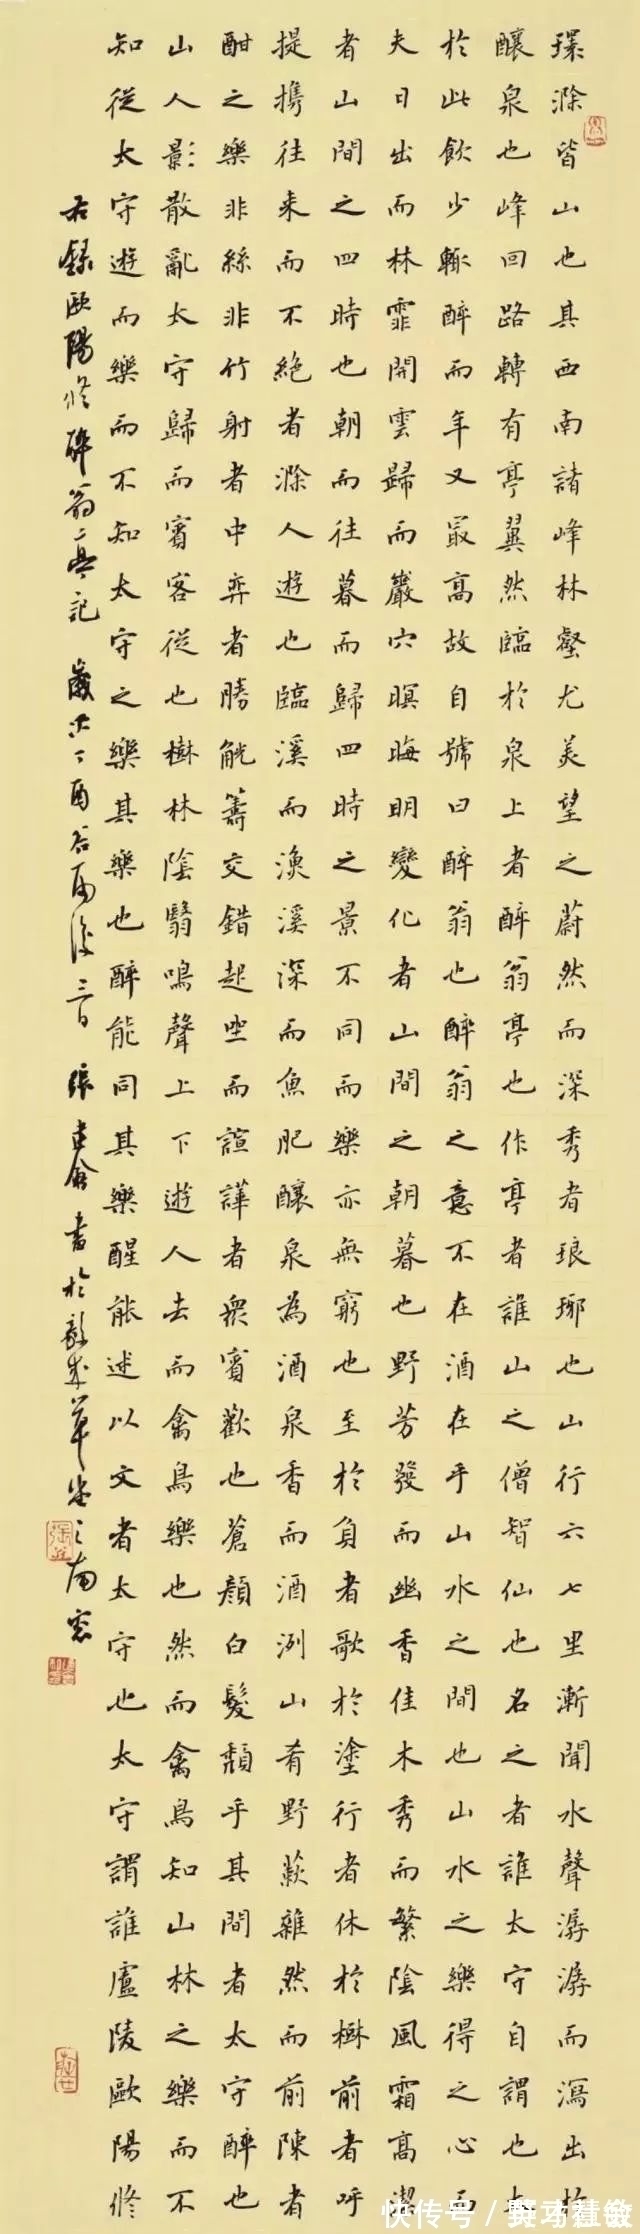 環滁皆山也其西南諸峰林壑尤美望之蔚然而深秀者琅琊也山行六七里漸聞水聲潺潺而瀉出於
釀泉也峰回路轉有亭翼然臨於泉上者醉翁亭也作亭者誰山之僧智仙也名之者誰太守自謂也太
於此飲少輒醉而年又最高故自號曰醉翁也醉翁之意不在酒在乎山水之間也山水之樂得之心而
夫日出而林霏開雲歸而巖穴暝晦明變化者山間之朝暮也野芳發而幽香佳木秀而繁陰風霜高潔
者山間之四時也朝而往暮而歸四時之景不同而樂亦無窮也至於負者歌於塗行者休於樹前者呼
提攜往來而不絕者滁人遊也臨溪而漁溪深而魚肥釀泉為酒泉香而酒洌山肴野蔌雜然而前陳者
酣之樂非絲非竹射者中弈者勝觥籌交錯起坐而諠譁者眾賓歡也蒼顏白髮頹乎其間者太守醉也
山人影散亂太守歸而賓客從也樹林陰翳鳴聲上下遊人去而禽鳥樂也然而禽鳥知山林之樂而不
知從太守遊而樂而不知太守之樂其樂也醉能同其樂醒能述以文者太守也太守謂誰廬陵歐陽修
右錄歐陽修醉翁亭記 歲 丁酉谷雨後三日 張 書於 草堂之南窗
快传号